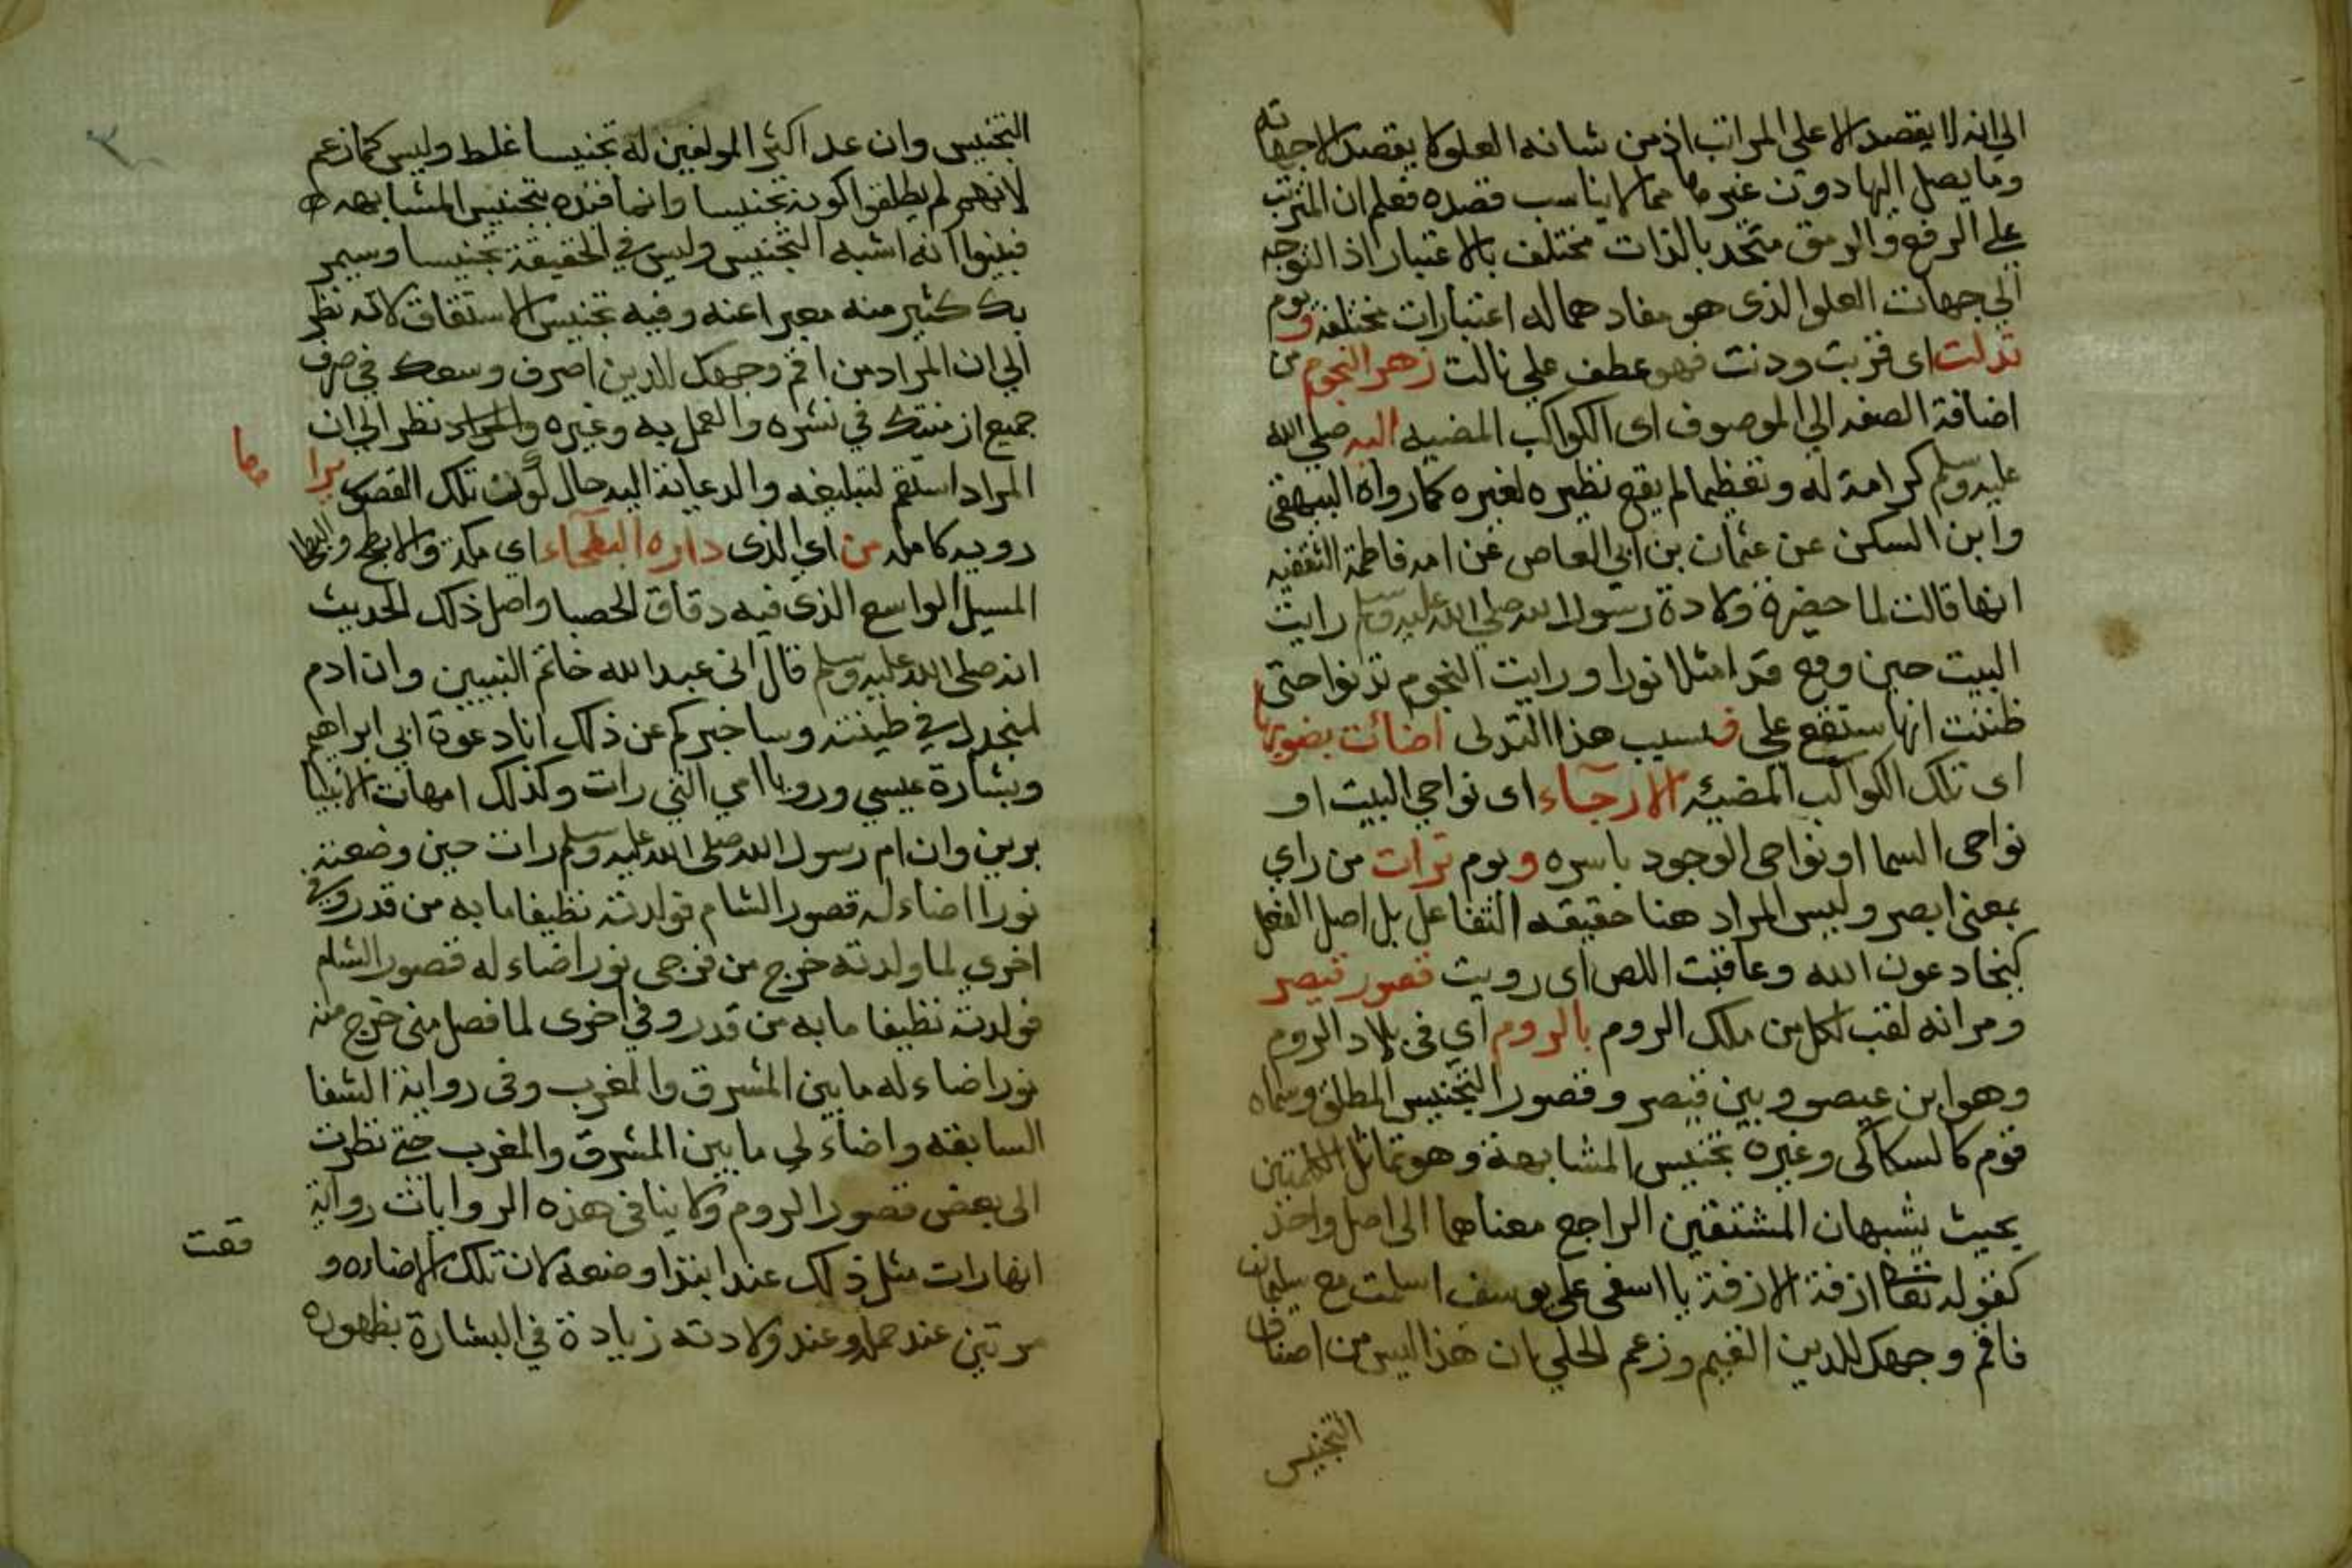 الي انه لا يقصد الا علي المراتب اذ من شانه العلو لا يقصد الا جهاته
وما يصل اليها دون غيرها مما لا يناسب قصده فعلم ان المترتب
علي الرفع والرمق متحد بالذات مختلف بالاعتبار اذ التوجه
الي جهات العلو الذى هو مفادهما له اعتبارات مختلفة ويوم
تدلت اى قربت ودنت فهو عطف علي نالت زهر النجوم من
اضافة الصفه الي الموصوف اى الكواكب المضيه اليه صلي الله
عليه وسلم كرامة له وتعظيما لم يقع نظيره لغيره كما رواه البيهقى
وابن السكن عن عثمان بن ابي العاص عن امه فاطمة الثقفيه
انها قالت لما حضرة ولادة رسول الله صلي الله عليه وسلم رايت
البيت حين وضع قد امتلا نورا ورايت النجوم تدنوا حتى
ظننت انها ستقع علي فبسبب هذا التدلى اضائت بضويها
اى تلك الكواكب المضيئه الارجآء اى نواحي البيت او
نواحى السما او نواحى الوجود باسره ويوم ترات من راي
بمعنى ابصر وليس المراد هنا حقيقه التفاعل بل اصل الفعل
كيخادعون الله وعاقبت اللص اى رويت قصور قيصر
ومر انه لقب لكل من ملك الروم بالروم اي فى بلاد الروم
وهو ابن عيصو وبين قيصر وقصور التجنيس المطلق وسماه
قوم كالسكاكى وغيره تجنيس المشابهة وهو تماثل الكلمتين
بحيث يشبهان المشتقين الراجع معناهما الى اصل واحد
كقوله تعا ازفة الازفة يااسفى على يوسف اسلمت مع سليمان
فاقم وجهك للدين القيم وزعم الحلي بان هذا ليس من اصناف
التجنيس
التجنيس وان عد اكثر المولفين له تجنيسا غلط وليس كما زعم
لانهم لم يطلقوا كونه تجنيسا وانما قيده بتجنيس المشابهه
فبينوا انه اشبه التجنيس وليس في الحقيقة تجنيسا وسيمر
بك كثير منه معبرا عنه وفيه تجنيس الاستقاق لانه نظر
الي ان المراد من اقم وجهك للدين اصرف وسعك في صرف
جميع ازمنتك في نشره والعمل به وغيره والمراد نظر الي ان
المراد استقم لتبليغه والدعاية اليه حال كون تلك القصور يرا
ها
رويه كامله من اي الذى داره البطحآء اي مكة والابطح والبطحا
المسيل الواسع الذي فيه دقاق الحصبا واصل ذلك الحديث
انه صلى الله عليه وسلم قال انى عبد الله خاتم النبيين وان ادم
لمنجدل في طينته وساخبركم عن ذلك انا دعوة ابي ابراهيم
وبشارة عيسي ورويا امي التي رات وكذلك امهات الانبيا
يرين وان ام رسول الله صلى الله عليه وسلم رات حين وضعته
نورا اضاء له قصور الشام فولدته نظيفا ما به من قدر وفي
اخري لما ولدته خرج من فرجى نور اضاء له قصور الشام
فولدته نظيفا ما به من قدر وفي اخرى لما فصل منى خرج منه
نور اضاء له ما بين المشرق والمغرب وفى رواية الشفا
السابقه واضاء لي ما بين المشرق والمغرب حتي نظرت
الى بعض قصور الروم ولا ينافى هذه الروايات رواية
انها رات مثل ذلك عند ابتدا وضعه لان تلك الاضاءه و
قعت
مرتين عند حمله وعند ولادته زيادة في البشارة بظهوره